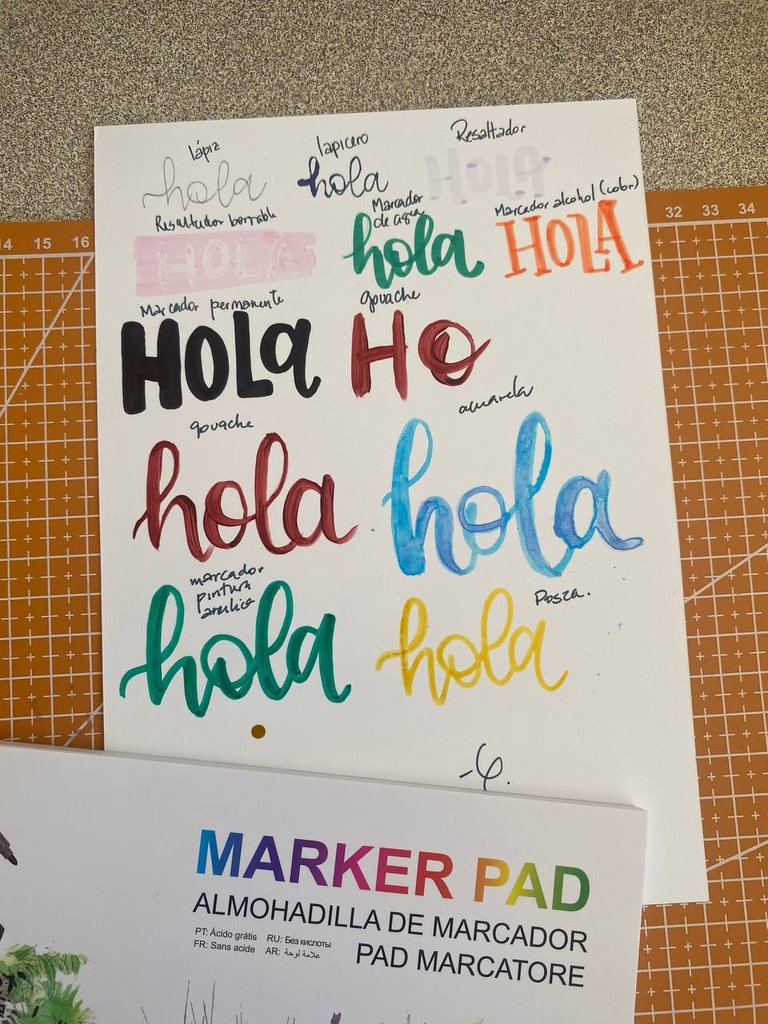 lápiz
hola
lapicero
hola
Resaltador
HOLA
Resaltador borrable
HOLA
Marcador
de agua
hola
Marcador alcohol (cobr.)
HOLA
Marcador permanente
HOLa
gouache
HO
gouache
hola
acuarela
hola
marcador
pintura
acrílica
hola
Posca.
hola
14 15 16
32 33 34
MARKER PAD
ALMOHADILLA DE MARCADOR
PT: Ácido grátis RU: Без кислоты
FR: Sans acide AR: علامة لوحة
PAD MARCATORE